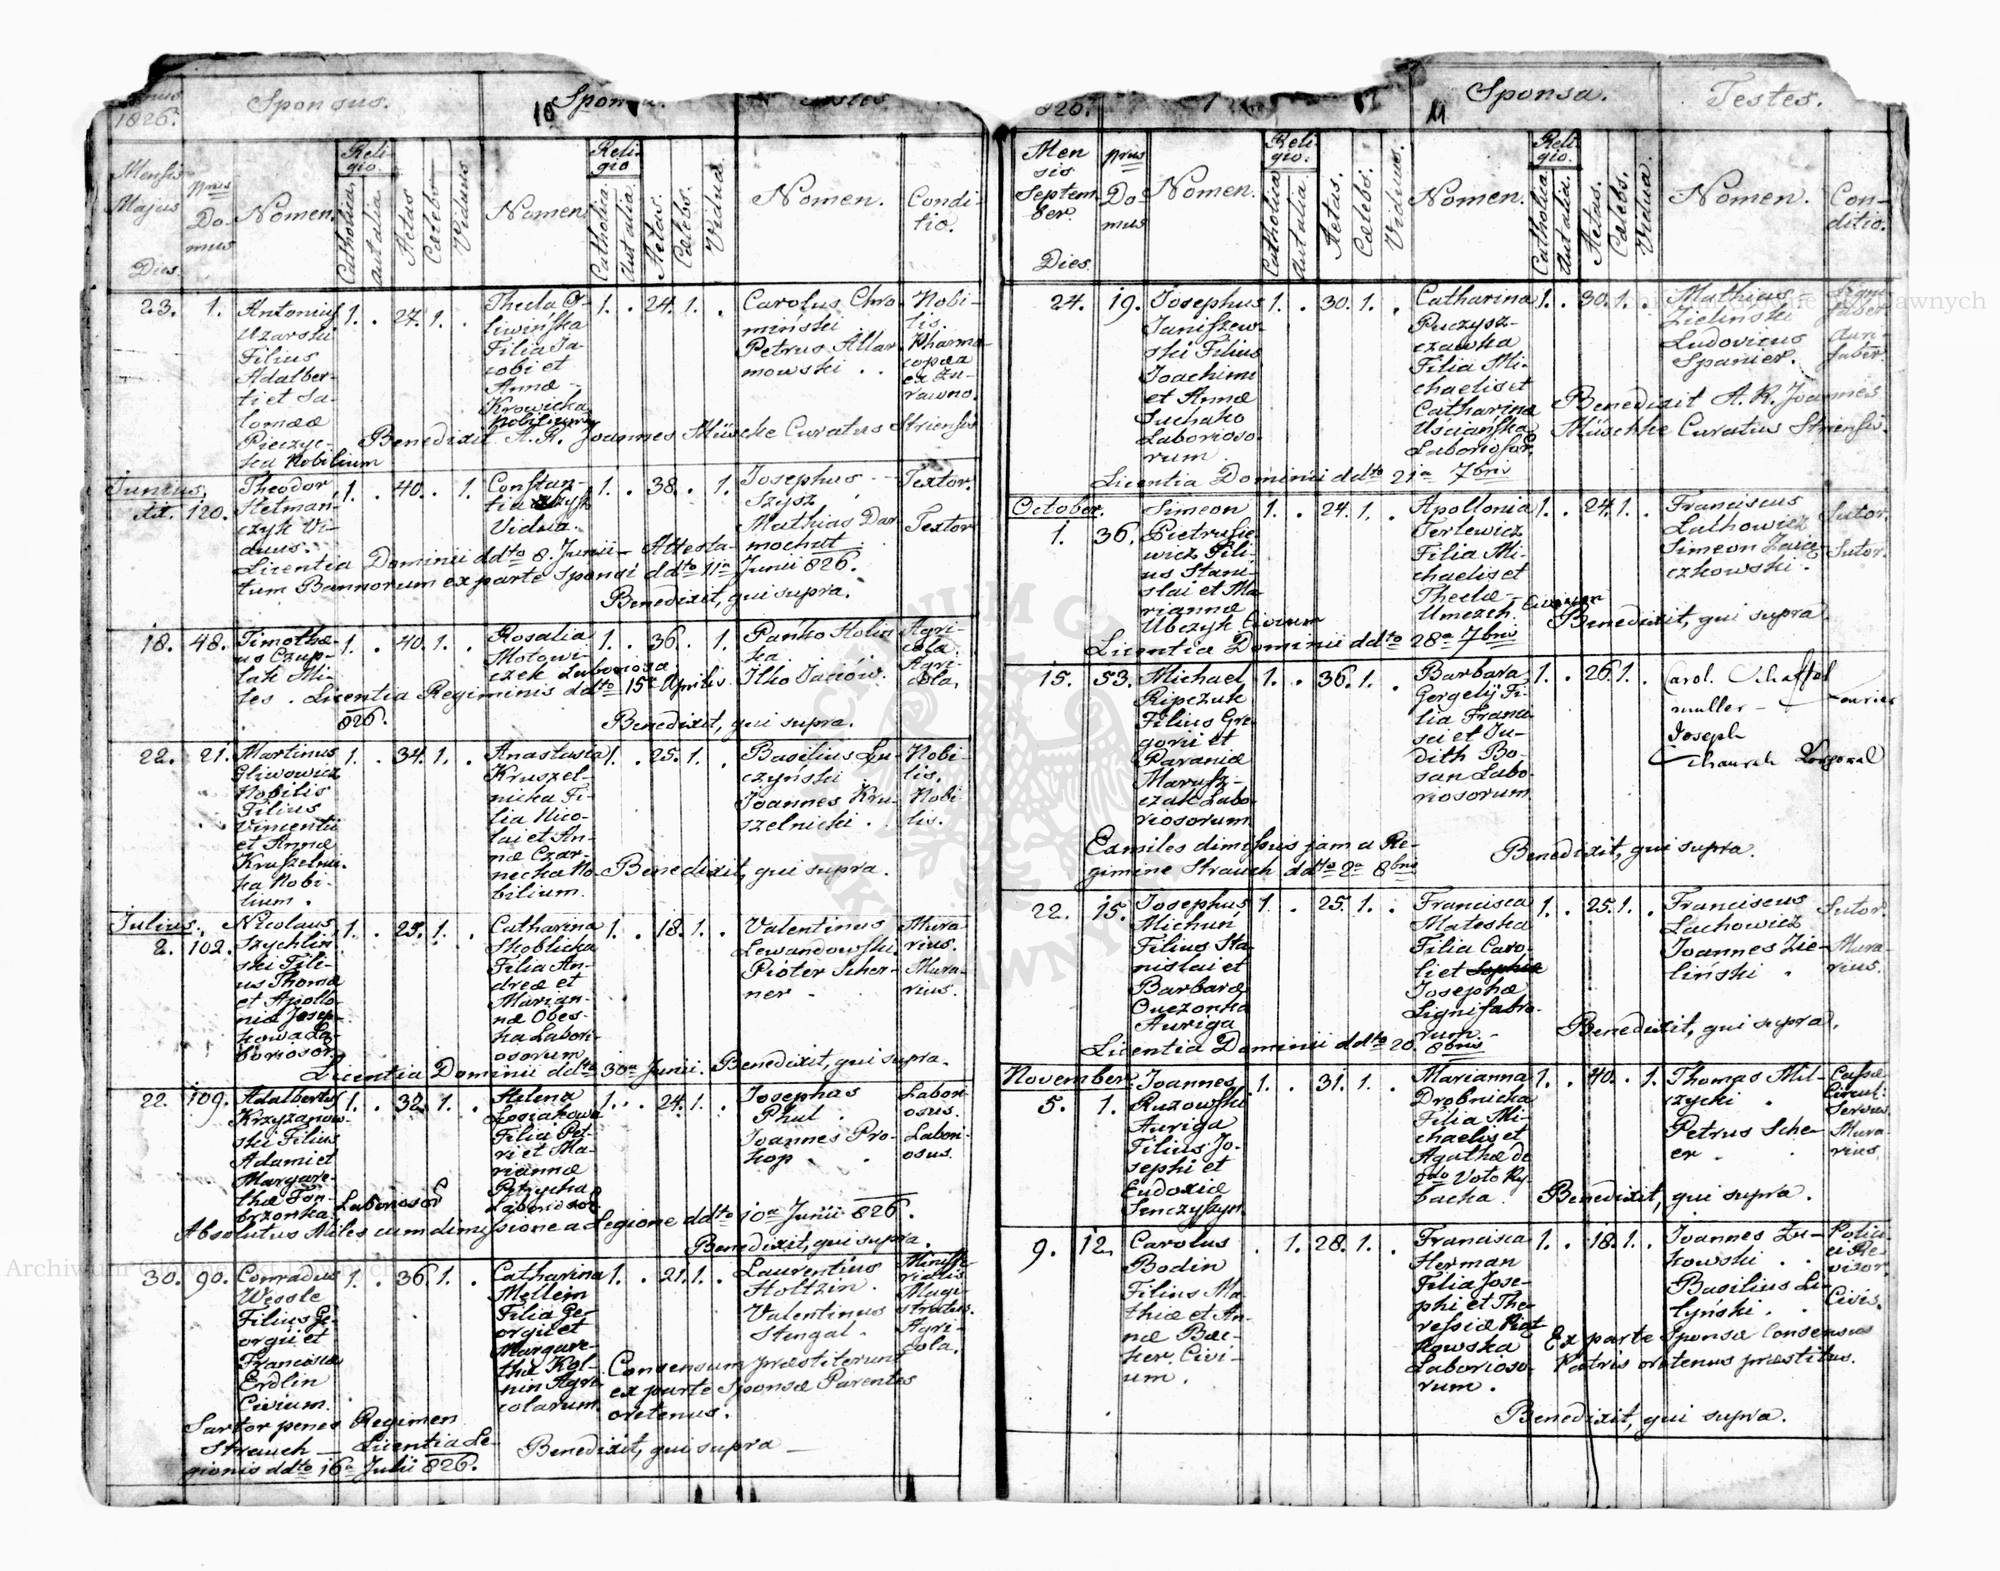 Annus
1826.
Sponsus.
10
Sponsa.
Testes
Mensis
Majus
Dies.
Nrus
Do-
mus
Nomen.
Reli
gio.
Catholica.
aut alia
Aetas
Caelebs
Viduus
Nomen
Reli-
gio
Catholica.
Aut alia.
Aetas.
Caelebs.
Vidua.
Nomen.
Condi-
tio.
23.
1.
Antonius
Uzarski
Filius
Adalber-
ti et Sa-
lomeae
Pieczyc-
ka Nobilium
1. . 27. 1. .
Thecla O-
liwińska
Filia Ja-
cobi et
Annae
Krowicka
Nobilium
1. . 24. 1. .
Carolus Chro
miński
Petrus Allar
mowski . .
Nobi-
lis.
Pharma-
copaea
ex Zu-
rawno.
Benedixit A. R. Joannes Müschke Curatus Striensis
Junius,
11. 120.
Theodor
Hetman-
czyk Vi-
duus.
1. . 40. . 1.
Constan-
tia Szysz
Vidua.
1. . 38. . 1.
Josephus
Szysz
Mathias Dar
mochut
Textor.
Textor
Licentia Dominii ddto 8. Junii - Attesta-
tum Bannorum ex parte Sponsi ddto 11a Junii 826.
Benedixit, qui supra.
18. 48.
Timothe-
us Czup-
lak Mi-
les.
1. . 40. 1. .
Rosalia
Motowi-
czek Laboriosa
1. . 36. . 1.
Pańko Holin
ka
Ilko Jaciów.
Agri-
cola.
Agri-
cola,
Licentia Regiminis ddto 15a Aprilis
826.
Benedixit, qui supra.
22. 21.
Martinus
Gliwowicz
Nobilis
Filius
Vincentii
et Annae
Kruszelni-
ka Nobi-
lium.
1. . 34. 1. .
Anastasia
Kruszel-
nicka Fi-
lia Nico-
lai et An-
nae Czar-
necka No-
bilium.
1. . 25. 1. .
Basilius Lu-
czyński
Joannes Kru-
szelnicki .
Nobi-
lis.
Nobi-
lis.
Benedixit, qui supra.
Julius.
2. 102.
Nicolaus
Szychlin
ski Fili-
us Thomae
et Apollo-
niae Josep-
howa La-
boriosor.
1. . 25. 1. .
Catharina
Skoblicka
Filia An-
dreae et
Marian-
nae Obes-
ka Labori-
osorum
1. . 18. 1. .
Valentinus
Lewandowski.
Pioter Scher-
ner .
Mura
rius.
Mura-
rius.
Licentia Dominii ddto 30a Junii. Benedixit, qui supra.
22. 109.
Adalbertus
Krzyzanow-
ski Filius
Adami et
Margare-
thae Fon-
brzonka. Laboriosor
1. . 32. 1. .
Helena
Losiakowa
Filia Pet-
ri et Ma-
riannae
Petrycka
Laboriosor
1. . 24. 1. .
Josephas
Phul .
Joannes Pro-
kop . .
Labori-
osus.
Labori-
osus.
Absolutus Miles cum dimissione a Legione ddto 10a Junii 826.
Benedixit, qui supra.
30. 90.
Conradus
Wessle
Filius Ge-
orgii et
Francisca
Erdlin
Civium.
1. . 36. 1. .
Catharina
Mellein
Filia Ge-
orgii et
Margare-
tha Kol-
nin Agri-
colarum.
1. . 21. 1. .
Laurentius
Holtzin.
Valentinus
Stengal.
Minist-
rialis
Magi-
stratus.
Agri-
cola.
Consensum praestiterunt
ex parte Sponsae Parentes
oretenus.
Sartor penes Regimen
Strauch — Licentia Le-
gionis ddto 16a Julii 826.
Benedixit, qui supra —
826.
11
Sponsa.
Testes.
Men
sis
Septem-
ber.
Dies.
Nrus
Do-
mus
Nomen.
Reli-
gio.
Catholica
Aut alia.
Aetas.
Caelebs.
Viduus.
Nomen.
Reli-
gio.
Catholica.
Aut alia.
Aetas.
Caelebs.
Vidua.
Nomen.
Con-
ditio.
24. 19.
Josephus
Janiszew-
ski Filius
Joachimi
et Annae
Suchako
Laborioso-
rum
1. . 30. 1. .
Catharina
Puczysz-
czawka
Filia Mi-
chaelis et
Catharinae
Uscianska
Laboriosor.
1. . 30. 1. .
Mathias
Zielinski
Ludovicus
Spanier.
Auri-
faber.
Benedixit A. R. Joannes
Müschke Curatus Striensis.
Licentia Dominii ddto 21a 7bris
October.
1. 36.
Simeon
Pietrusie
wicz Fili-
us Stani-
slai et Ma-
riannae
Ubczyk Civium
1. . 24. 1. .
Apollonia
Terlewicz
Filia Mi-
chaelis et
Theclae
Umezeh Civium
1. . 24. 1. .
Franciscus
Lathowicz
Simeon Zaią-
czkowski.
Sutor.
Sutor.
Benedixit, qui supra
Licentia Dominii ddto 28a 7bris
15. 53.
Michael
Ripczuk
Filius Gre
gorii et
Paraniae
Marysz-
czak Labo-
riosorum
1. . 36. 1. .
Barbara
Gergelij Fi-
lia Franci
sci et Ju-
dith Bo-
san Labo-
riosorum
1. . 26. 1. .
Carol. Schaffel
muller —
Joseph
Fourier
Corporal
Exmiles dimissus jam a Re-
gimine Strauch ddto 2a 8bris
Benedixit, qui supra.
22. 15.
Josephus
Michuń
Filius Sta-
nislai et
Barbarae
Ouczonka
Auriga
1. . 25. 1. .
Francisca
Mateska
Filia Caro-
li et Sophiae
Josephae
Lignifabro-
rum
1. . 25. 1. .
Franciscus
Lachowicz
Joannes Zie-
liński .
Sutor.
Mura-
rius.
Benedixit, qui supra,
Licentia Dominii ddto 20. 8bris
November.
5. 1.
Joannes
Ruzowski
Auriga
Filius Jo-
sephi et
Eudoxiae
Senczyszyn
1. . 31. 1. .
Marianna
Drobnicka
Filia Mi-
chaelis et
Agathae de
Voto Ry-
backa.
1. . 40. . 1.
Thomas Mil-
czycki .
Petrus Sche-
er . .
Cassae
Circul.
Servus.
Mura-
rius.
Benedixit, qui supra.
9. 12.
Carolus
Bodin
Filius Ma-
thiae et An-
nae Bec-
ker, Civi-
um.
. 1. 28. 1. .
Francisca
Herman
Filia Jose-
phi et The-
resiae Piąt
kowska
Laborioso-
rum.
1. . 18. 1. .
Joannes Zu-
kowski . .
Basilius Li-
tyński . .
Polici-
ei Re-
visor.
Civis.
Ex parte Sponsae Consensus
Patris oretenus praestitus.
Benedixit, qui supra.
Archiwum Główne Akt Dawnych